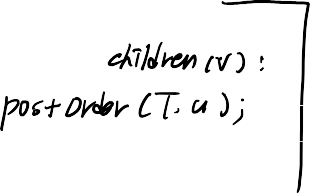 children(v):
postorder(T, u);